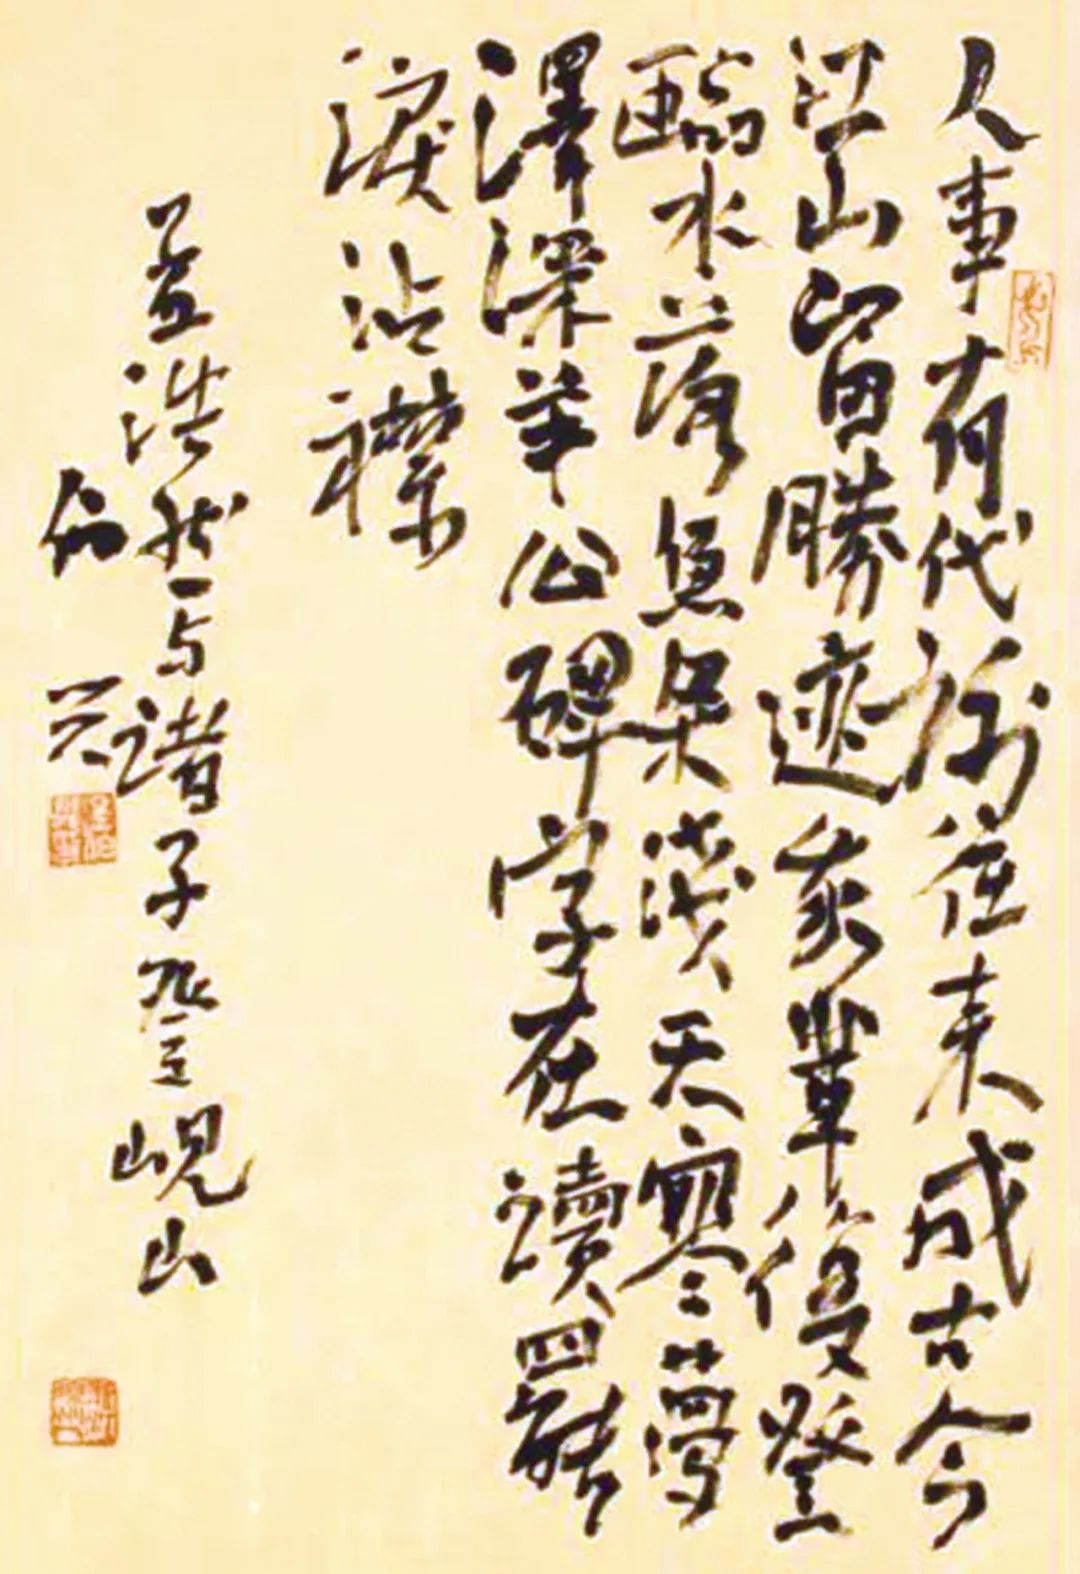 人事有代謝往来成古今
江山留勝迹我輩復登
臨水落魚梁淺天寒夢
澤深羊公碑字在讀罷
淚沾襟
孟浩然与諸子登峴山